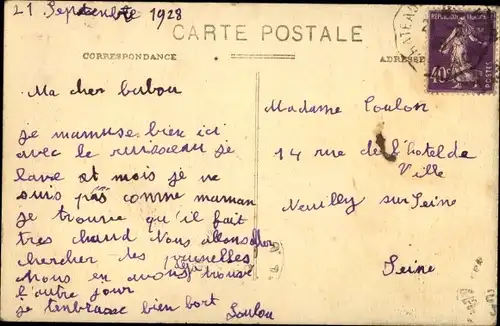 21 Septembre 1928
CARTE POSTALE
CORRESPONDANCE
ADRESSE
REPUBLIQUE FRANCAISE
40c
POSTES
Ma cher bubou
je mamuse bien ici
avec le ruisseau je
lave et mois je ne
suis pas comme maman
je trouve qu'il fait
tres chaud Nous allons aller
chercher des prunelles
Nous en avons deja trouvé
l'autre jour
je tenbrasse bien bort
Loulou
Madame Coulon
14 rue de l'hotel de
Ville
Neuilly sur Seine
Seine